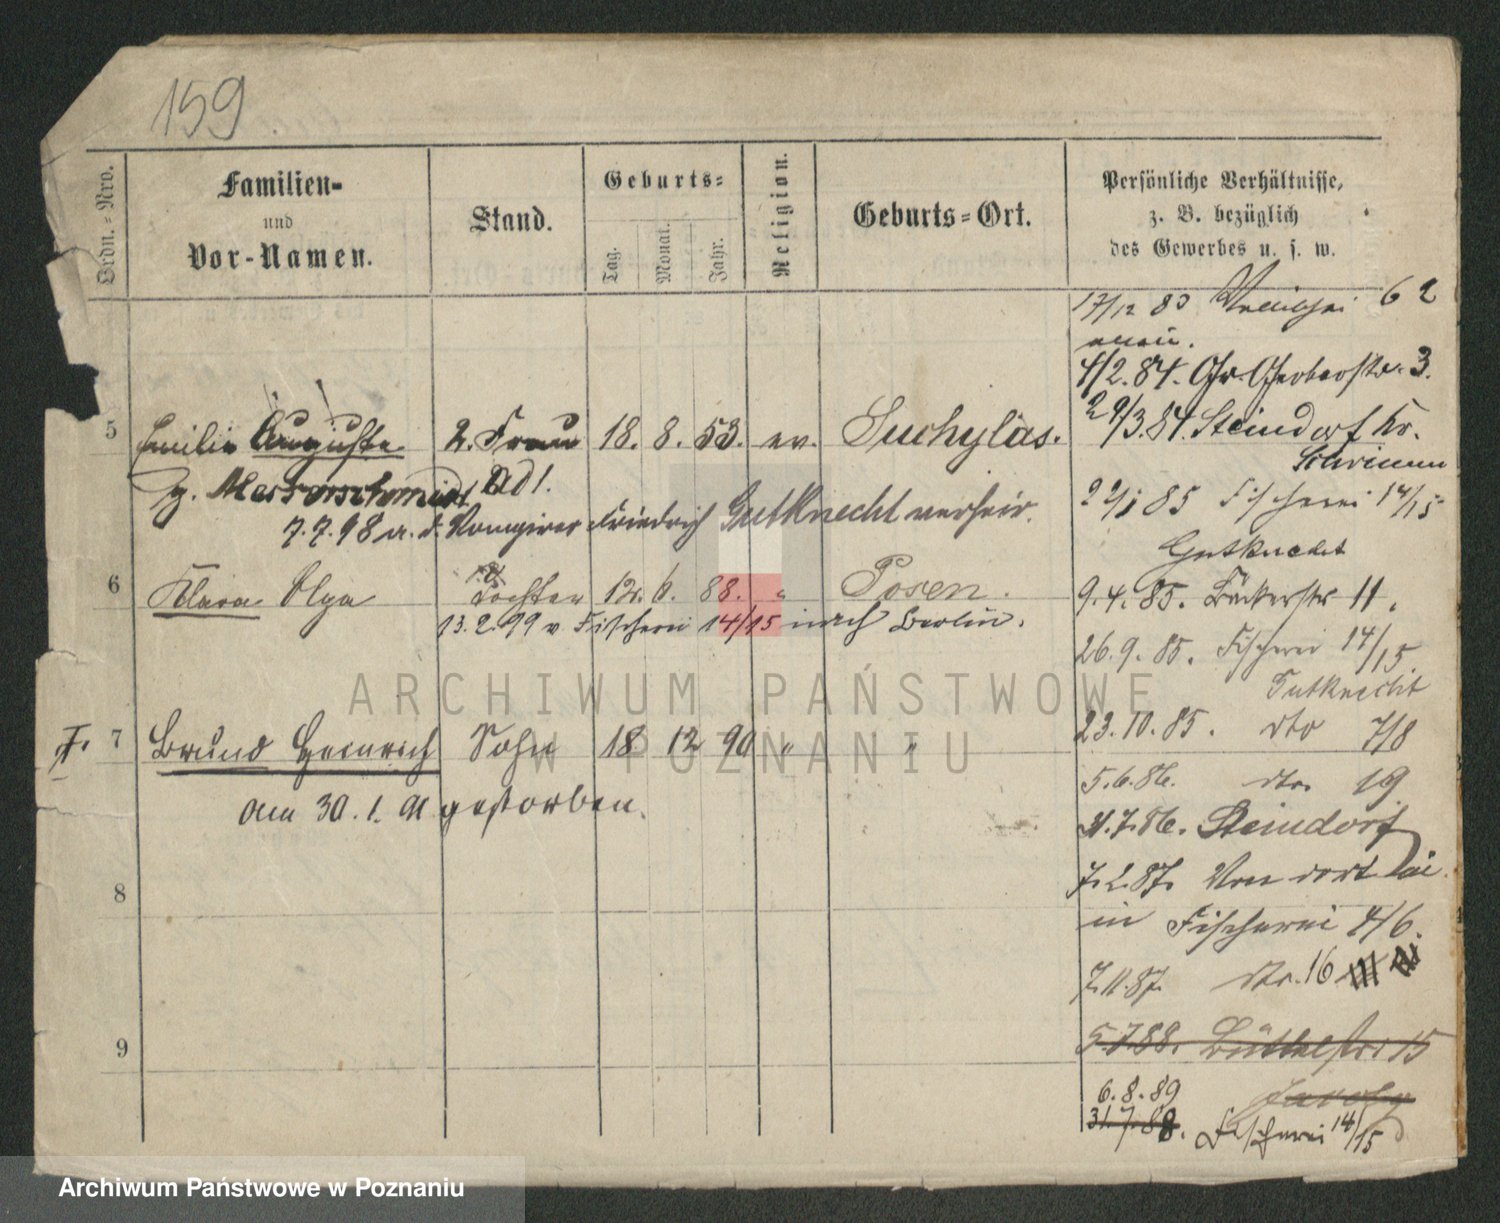 159
Ordn.=Nro.
Familien=
und
Vor-Namen.
Stand.
Geburts=
Tag.
Monat.
Jahr.
Religion.
Geburts=Ort.
Persönliche Verhältnisse,
z. B. bezüglich
des Gewerbes u. s. w.
5 Emilie Auguste 2. Frau 18. 8. 53. ev. Suchylas.
g. Messerschmidt
7.7.98 a. d. Friedrich Gutknecht verheir.
6 Klara Olga Tochter 12. 6. 88. " Posen.
13.2.99 v. Fischerei 14/15 nach Berlin.
7 Bruno Heinrich Sohn 18 12 90 " "
am 30. 1. 91 gestorben.
8
9
17/12 83 62
4/2.84. Gr. Gerberstr. 3.
29/3.84. Steindorf Kr.
Schrimm
22/1 85 Fischerei 14/15
Gutknecht
9.4.85. Bäckerstr 11.
26.9.85. Fischerei 14/15
Gutknecht
23.10.85. dto 7/8
5.6.86. dto. 19
31.7.86. Steindorf
7.2.87. Von dort
in Fischerei 4/6.
7.11.87. dto. 16
5.7.88. Büttelstr. 15
6.8.89
31.7.88. Fischerei 14/15
ARCHIWUM PAŃSTWOWE
W POZNANIU
Archiwum Państwowe w Poznaniu